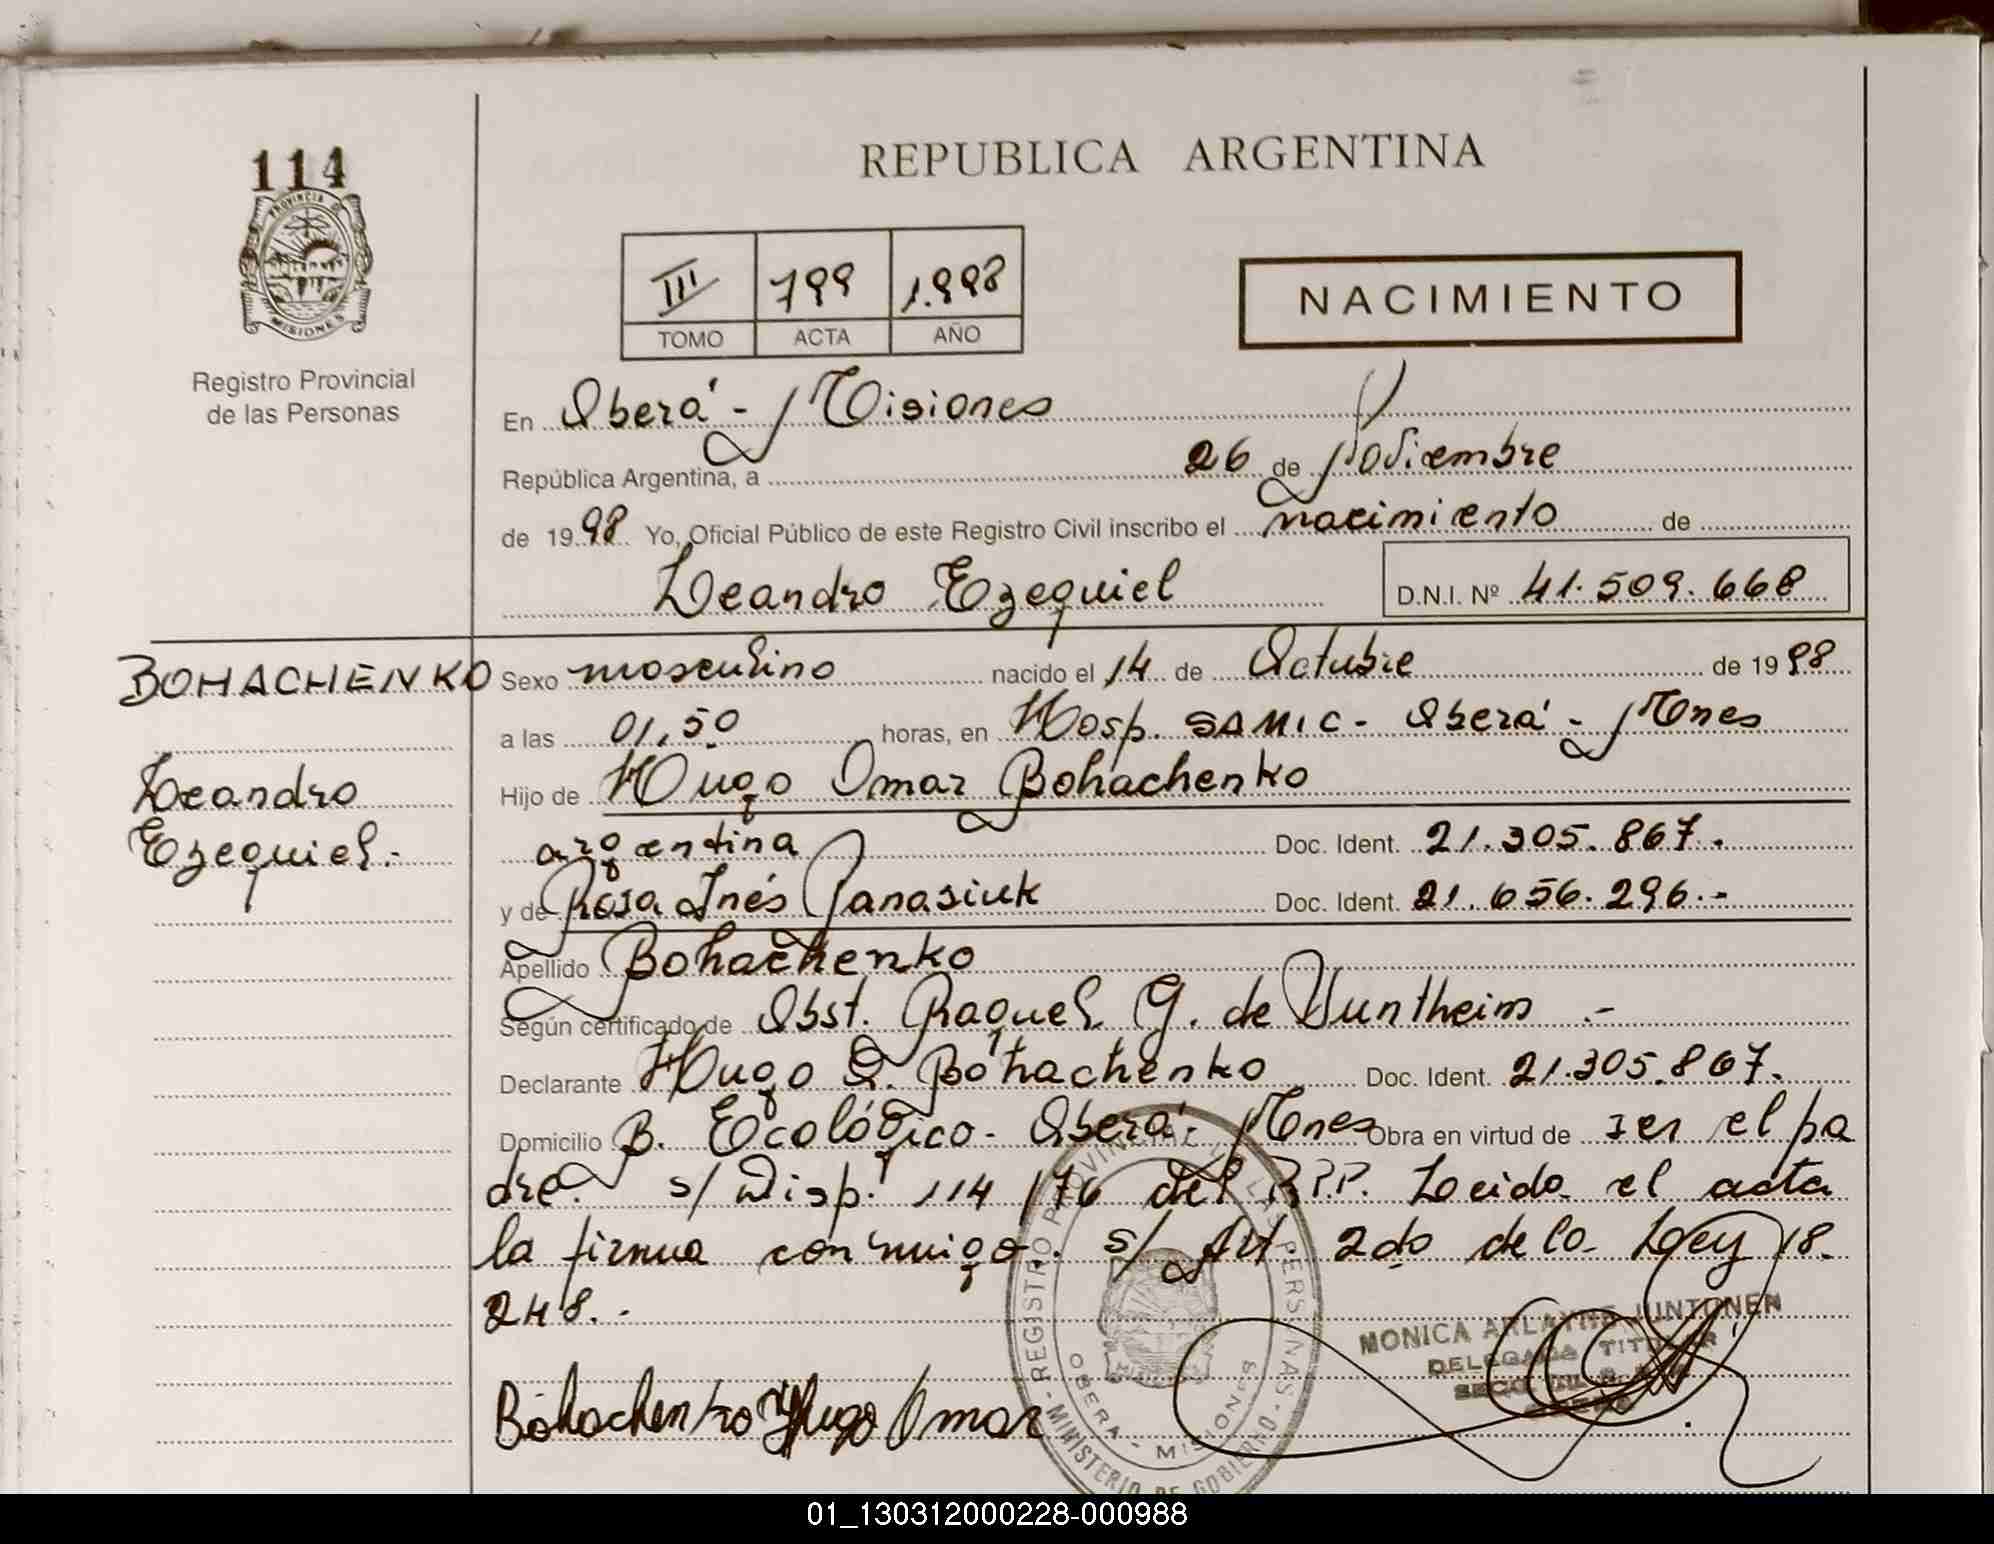 114
PROVINCIA DE
MISIONES
Registro Provincial
de las Personas
REPUBLICA ARGENTINA
III 799 1.998
TOMO ACTA AÑO
NACIMIENTO
En Oberá - Misiones
República Argentina, a 26 de Noviembre
de 1998 Yo, Oficial Público de este Registro Civil inscribo el nacimiento de
Leandro Ezequiel D.N.I. Nº 41.509.668
BOHACHENKO
Leandro
Ezequiel.-
Sexo masculino nacido el 14 de Octubre de 1998
a las 01,50 horas, en Hosp. SAMIC - Oberá - Mnes
Hijo de Hugo Omar Bohachenko
argentina Doc. Ident. 21.305.867.
y de Rosa Inés Panasiuk Doc. Ident. 21.656.296.-
Apellido Bohachenko
Según certificado de Obst. Raquel G. de Huntheim .-
Declarante Hugo O. Bohachenko Doc. Ident. 21.305.867.
Domicilio B. Ecológico - Oberá - Mnes Obra en virtud de ser el pa
dre. s/ Disp. 114/76 del R.P.P. Leida el acta
la firma conmigo. s/ Art. 2do de la Ley 18.
248.-
Bohachenko Hugo Omar
REGISTRO PROVINCIAL DE LAS PERSONAS
OBERA - MISIONES
MINISTERIO DE GOBIERNO
MONICA ARLAYNE JUNTUNEN
DELEGADA TITULAR
01_130312000228-000988